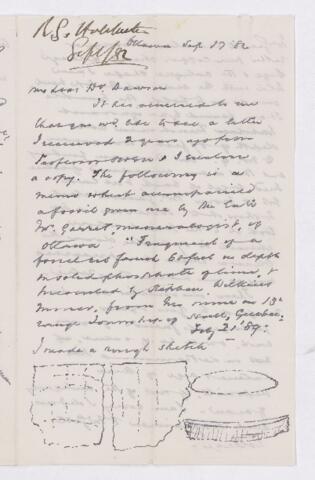 Sept/82
Ottawa Sep. 27 82
My Dear Dr. Dawson
It has occurred to me
that you wd. like to see a letter
I received 2 years ago from
Professor Owen & I enclose
a copy. The following is a
memo which accompanied
a fossil given me by the late
Mr. Garret, mineralogist, of
Ottawa "Fragment of a
fossil rib found 60 feet in depth
in solid phosphate of lime, &
by Stephen Wilkins
Miner, from the mine on 13th
range Township of Hull, Quebec.
July 21
I made a rough sketch